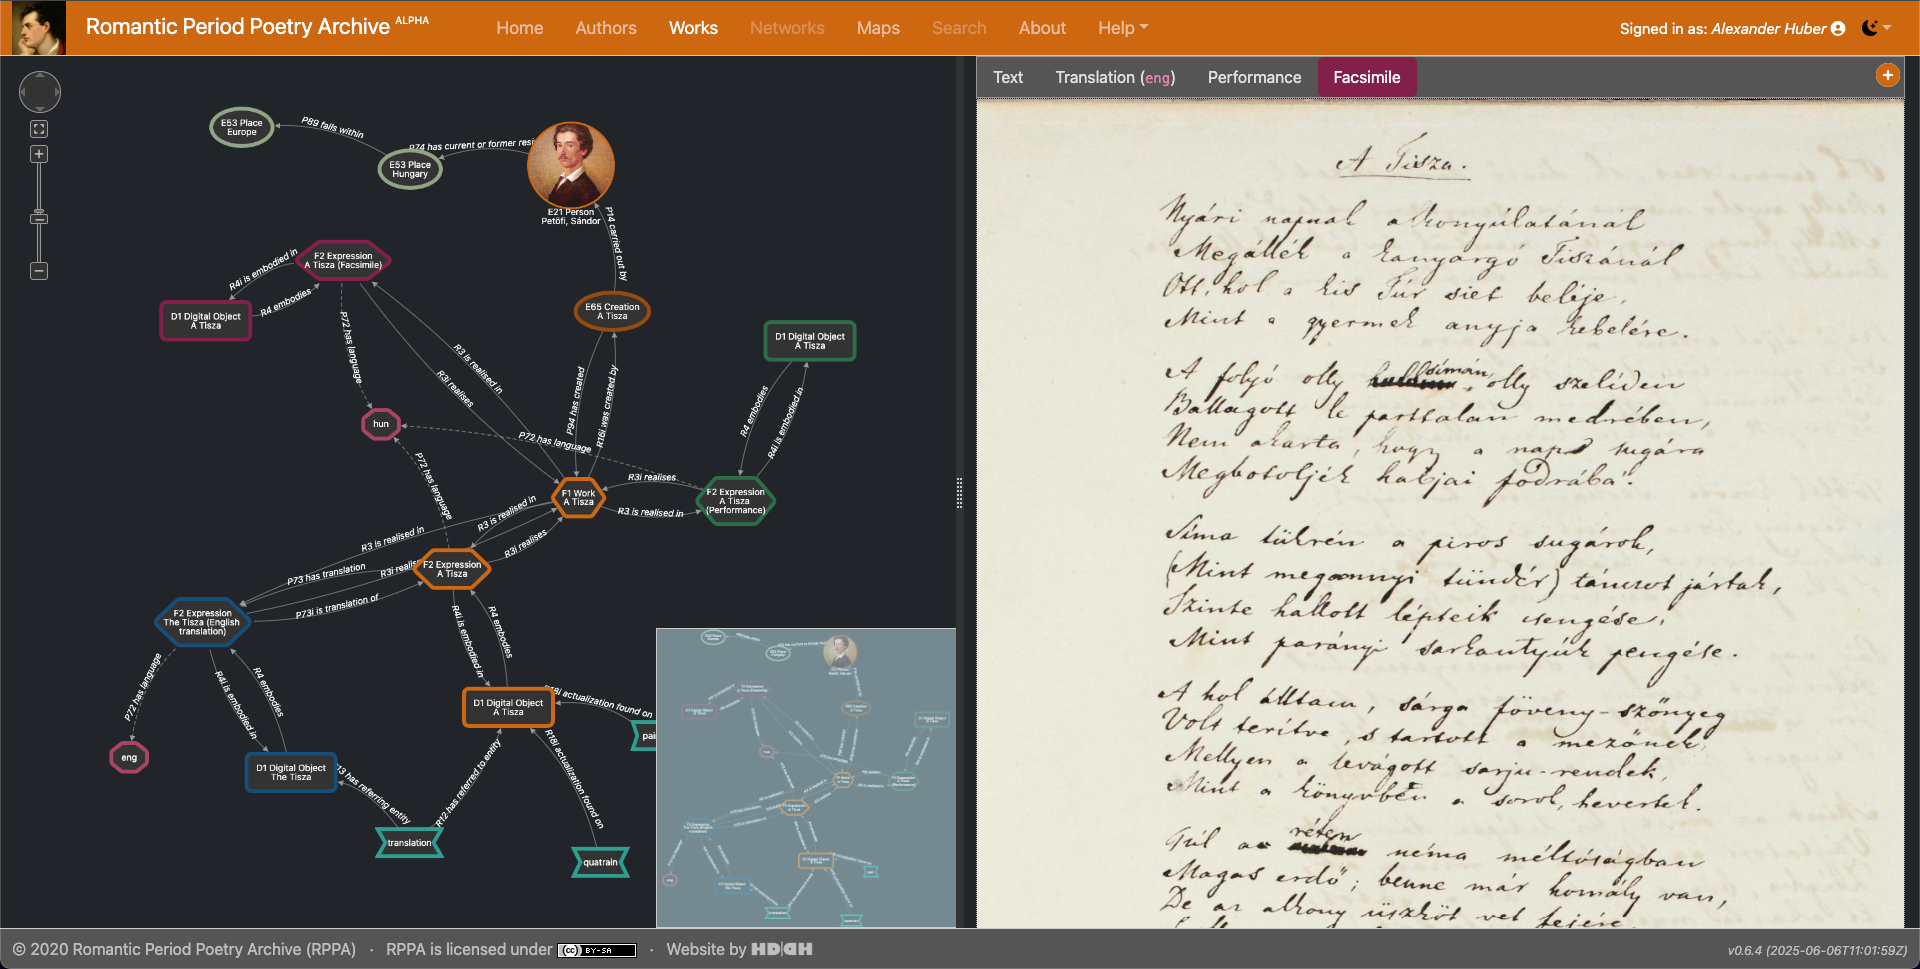 Romantic Period Poetry Archive ALPHA
Home
Authors
Works
Networks
Maps
Search
About
Help
Signed in as: Alexander Huber
E53 Place
Europe
P89 falls within
E53 Place
Hungary
P74 has current or former resi
E21 Person
Petőfi, Sándor
P14 carried out by
F2 Expression
A Tisza (Facsimile)
R4i is embodied in
R4 embodies
D1 Digital Object
A Tisza
P72 has language
R3 is realised in
R3i realises
E65 Creation
A Tisza
P94 has created
R16i was created by
D1 Digital Object
A Tisza
R4 embodies
R4i is embodied in
hun
P72 has language
P72 has language
F1 Work
A Tisza
R3i realises
R3 is realised in
F2 Expression
A Tisza
(Performance)
R3 is realised in
R3i realises
R3 is realised in
F2 Expression
A Tisza
P73 has translation
R3i realis
P73i is translation of
F2 Expression
The Tisza (English
translation)
P72 has language
R4i is embodied in
R4 embodies
R4i is embodied in
R4 embodies
D1 Digital Object
A Tisza
R18i actualization found on
pai
eng
D1 Digital Object
The Tisza
P13 has referring entity
R12 has referred to entity
R18i actualization found on
translation
quatrain
Text
Translation (eng)
Performance
Facsimile
+
A Tisza.
Nyári napnak alkonyúlatánál
Megállék a kanyargó Tiszánál
Ott, hol a kis Túr siet beléje,
Mint a gyermek anyja kebelére.
A folyó olly simán, olly szelíden
Ballagott le parttalan medrében,
Nem akarta, hogy a nap sugára
Megbotoljék habjai fodrába!.
Síma tükrén a piros sugárok,
(Mint megannyi tündér) táncot jártak,
Szinte hallott lépteik csengése,
Mint parányi sarkantyúk pengése.
A hol álltam, sárga föveny-szőnyeg
Volt terítve, s tartott a mezőnek,
Mellyen a levágott sarju-rendek,
Mint a könyvben a sorok, hevertek.
Túl a réten néma méltóságban
Magas erdő; benne már homály van,
De az alkony üszköt vet fejére
© 2020 Romantic Period Poetry Archive (RPPA) · RPPA is licensed under CC BY-SA · Website by HD|DH
v0.6.4 (2025-06-06T11:01:59Z)